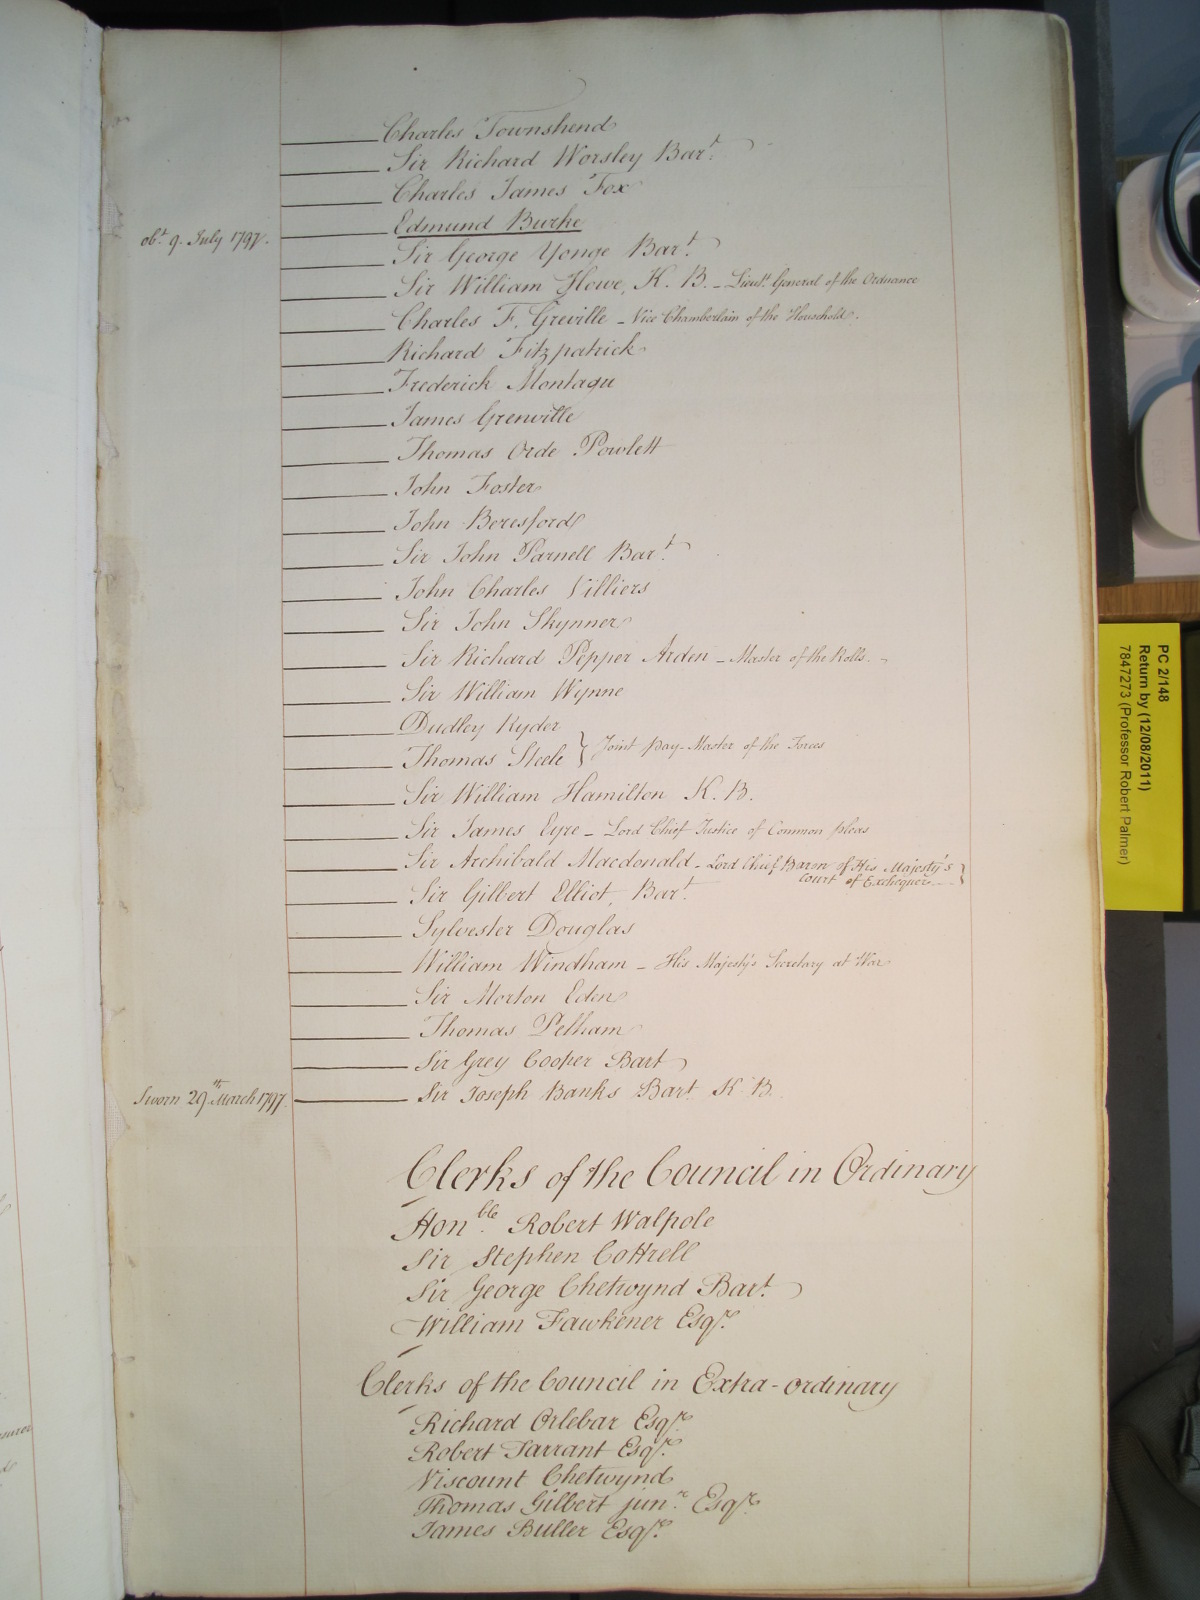 Charles Townshend
Sir Richard Worsley Bart.
Charles James Fox
obt. 9. July 1797. Edmund Burke
Sir George Yonge Bart.
Sir William Howe, K. B. - Lieut. General of the Ordnance
Charles F. Greville - Vice Chamberlain of the Household.
Richard Fitzpatrick
Frederick Montagu
James Grenville
Thomas Orde Powlett
John Foster
John Beresford
Sir John Parnell Bart.
John Charles Villiers
Sir John Skynner
Sir Richard Pepper Arden - Master of the Rolls.
Sir William Wynne
Dudley Ryder
Thomas Steele } Joint Pay-Master of the Forces
Sir William Hamilton K. B.
Sir James Eyre - Lord Chief Justice of Common pleas
Sir Archibald Macdonald - Lord Chief Baron of His Majesty's
Court of Exchequer }
Sir Gilbert Elliot, Bart.
Sylvester Douglas
William Windham - His Majesty's Secretary at War
Sir Morton Eden
Thomas Pelham
Sir Grey Cooper Bart
Sworn 29th March 1797. Sir Joseph Banks Bart K B.
Clerks of the Council in Ordinary
Honble. Robert Walpole
Sir Stephen Cottrell
Sir George Chetwynd Bart.
William Fawkener Esqr.
Clerks of the Council in Extra-ordinary
Richard Orlebar Esqr.
Robert Tarrant Esqr.
Viscount Chetwynd
Thomas Gilbert junr. Esqr.
James Buller Esqr.
PC 2/148
Return by (12/08/2011)
7847273 (Professor Robert Palmer)